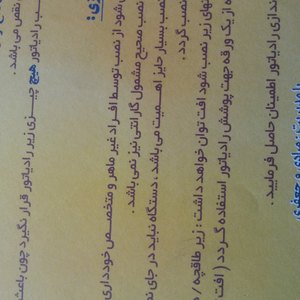 نقص می باشد.
رادیاتور هیچ چیزی زیر رادیاتور قرار نگیرد چون باعث
شود از نصب توسط افراد غیر ماهر و متخصص خودداری
نصب صحیح مشمول گارانتی نیز نمی باشد.
نصب بسیار حایز اهمیت می باشد. دستگاه نباید در جای
نصب گردد.
زیر نصب شود افت توان خواهد داشت : زیر طاقچه /
از یک ورقه جهت پوشش رادیاتور استفاده گردد ( افت
رادیاتور اطمینان حاصل فرمایید.